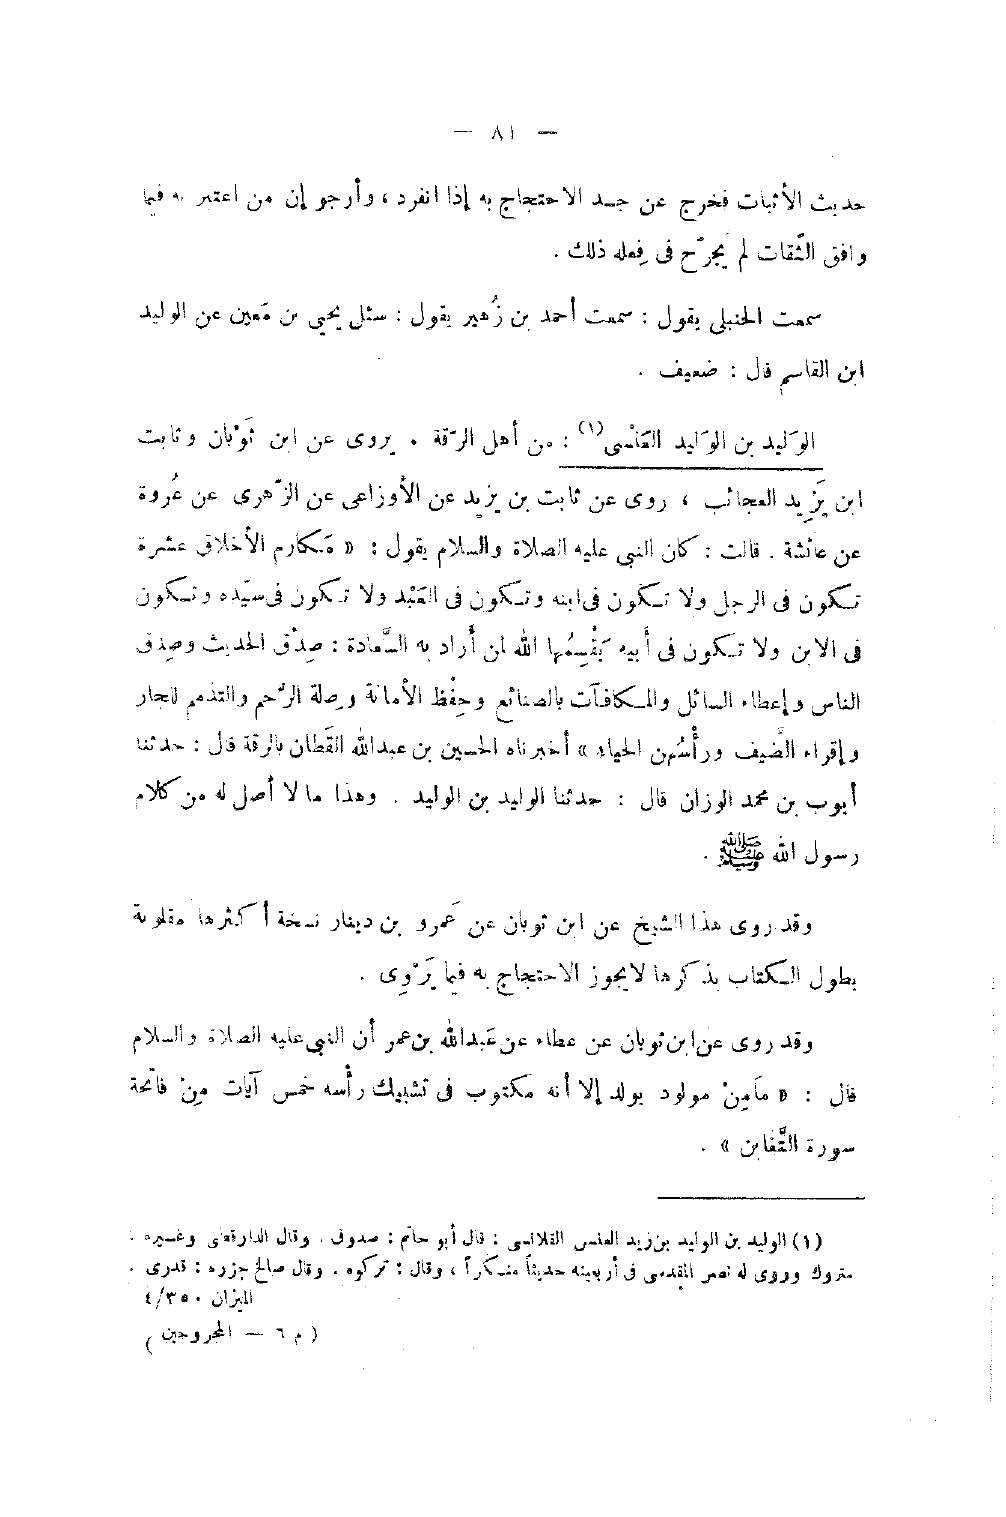 — ٨١ —
حديث الأثبات فخرج عن حد الاحتجاج به إذا انفرد ، وأرجو إن من اعتبر به فيما
وافق الثِّقات لم يُجرَّح فى فِعله ذلك .
سمعت الحنبلى يقول : سمعت أحمد بن زُهير يقول : سئل يحيى بن مَعين عن الوليد
ابن القاسم قال : ضعيف .
الوَليد بن الوَليد العَنْسى(١) : من أهل الرّقة . يروى عن ابن ثَوْبان وثابت
ابن يَزِيد العجائب ، روى عن ثابت بن يزيد عن الأوزاعى عن الزّهرى عن عُروة
عن عائشة . قالت : كان النبى عليه الصلاة والسلام يقول : « مَكارم الأخلاق عشرة
تكون فى الرجل ولا تكون فى ابنه وتكون فى العَبْد ولا تكون فى سيّده وتكون
فى الابن ولا تكون فى أبيه يَقْسِمُها الله لمن أراد به السَّعادة : صِدْق الحديث وصِدق
الناس وإعطاء السائل والمكافآت بالصنائع وحِفْظ الأمانة وصلة الرّحم والتذمم للجار
وإقراء الضَّيف ورأْسُهن الحياء » أخبرناه الحسين بن عبدالله القَطان بالرقة قال : حدثنا
أيوب بن محمد الوزان قال : حدثنا الوليد بن الوليد . وهذا ما لا أصل له من كلام
رسول الله ﷺ .
وقد روى هذا الشيخ عن ابن ثوبان عن عَمرو بن دينار نسخة أكثرها مقلوبة
يطول الكتاب بذكرها لايجوز الاحتجاج به فيما يَرْوِى .
وقد روى عن ابن ثوبان عن عطاء عن عَبدالله بن عمر أن النبى عليه الصلاة والسلام
قال : « مَامِنْ مولود يولد إلا أنه مكتوب فى تشبيك رأْسه خمس آيات مِنْ فاتحة
سورة التَّغابن » .
(١) الوليد بن الوليد بن زيد العنسى القلانسى : قال أبو حاتم : صدوق . وقال الدارقطنى وغيره :
متروك وروى له نصر المقدسى فى أربعينه حديثاً منكراً ، وقال : تركوه . وقال صالح جزره : قدرى .
الميزان ٤/٣٥٠
( م ٦ — المجروحين )